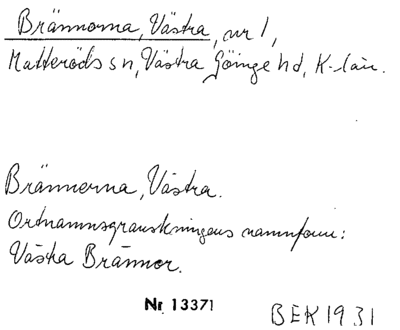 Brännorna, Västra, nr 1,
Matteröds sn, Västra Göinge hd, K-län.
Brännerna, Västra.
Ortnamnsgranskningens namnform:
Västra Brännor.
Nr 13371
BEK 1931